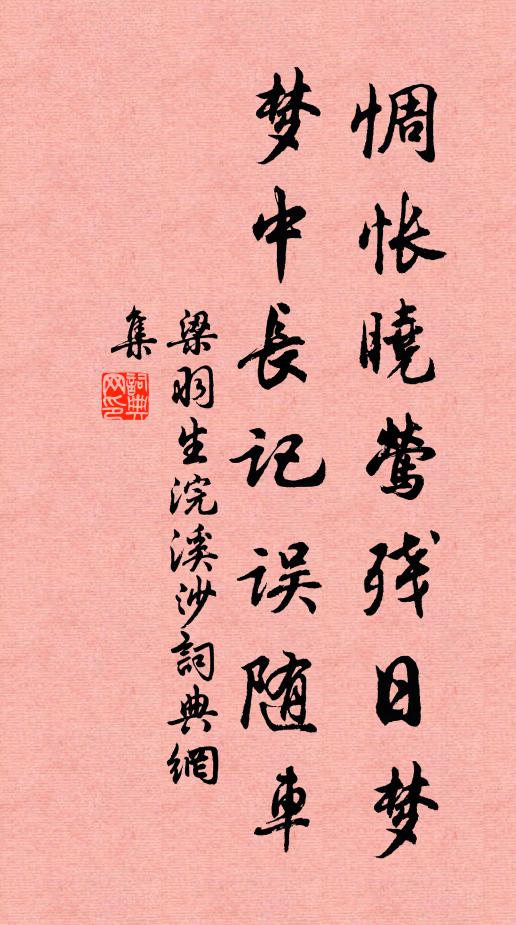 惆怅曉莺残日梦
梦中長记误随車
梁羽生浣溪沙詞典網
集
詞典網印